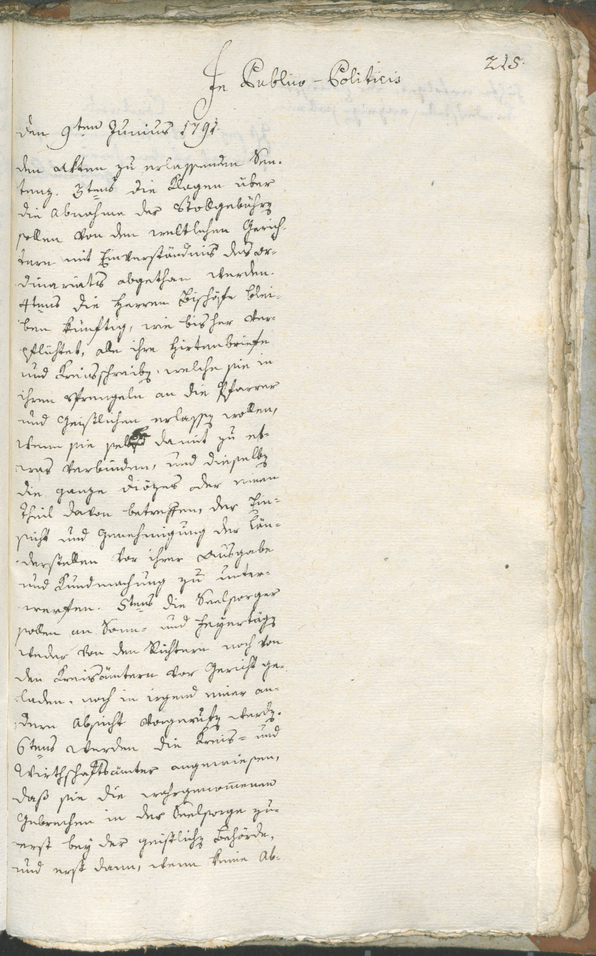 215.
In Publico-Politicis
den 9ten Junius 1791
den akten zu erlassenden Sen-
tenz. 3tens die Klagen über
die Abnahme der Stollgebühren
sollen von den weltlichen Gerich-
tern mit Einverständnis des Or-
dinariats abgethan werden.
4tens die Herren Bischöfe blei-
ben künftig, wie bisher ver-
pflichtet, alle ihre Hirtenbriefe
und Kreisschreiben, welche sie in
ihren Sprengeln an die Pfarrer
und Geistlichen erlassen wollen,
wenn sie selbe damit zu et-
was verbinden, und dieselben
die ganze Diözes oder einen
Theil davon betreffen, der Ein-
sicht und Genehmigung der Län-
derstellen vor ihrer Ausgabe
und Kundmachung zu unter-
werfen. 5tens die Seelsorger
sollen an Sonn- und Feyertägen
weder von den Richtern noch von
den Kreisämtern vor Gericht ge-
laden, noch in irgend einer an-
dern Absicht vorgerufen werden.
6tens werden die Kreis- und
Wirthschaftsämter angewiesen,
daß sie die wahrgenommenen
Gebrechen in der Seelsorge zu-
erst bey der geistlichen Behörde,
und erst dann, wenn keine Ab-